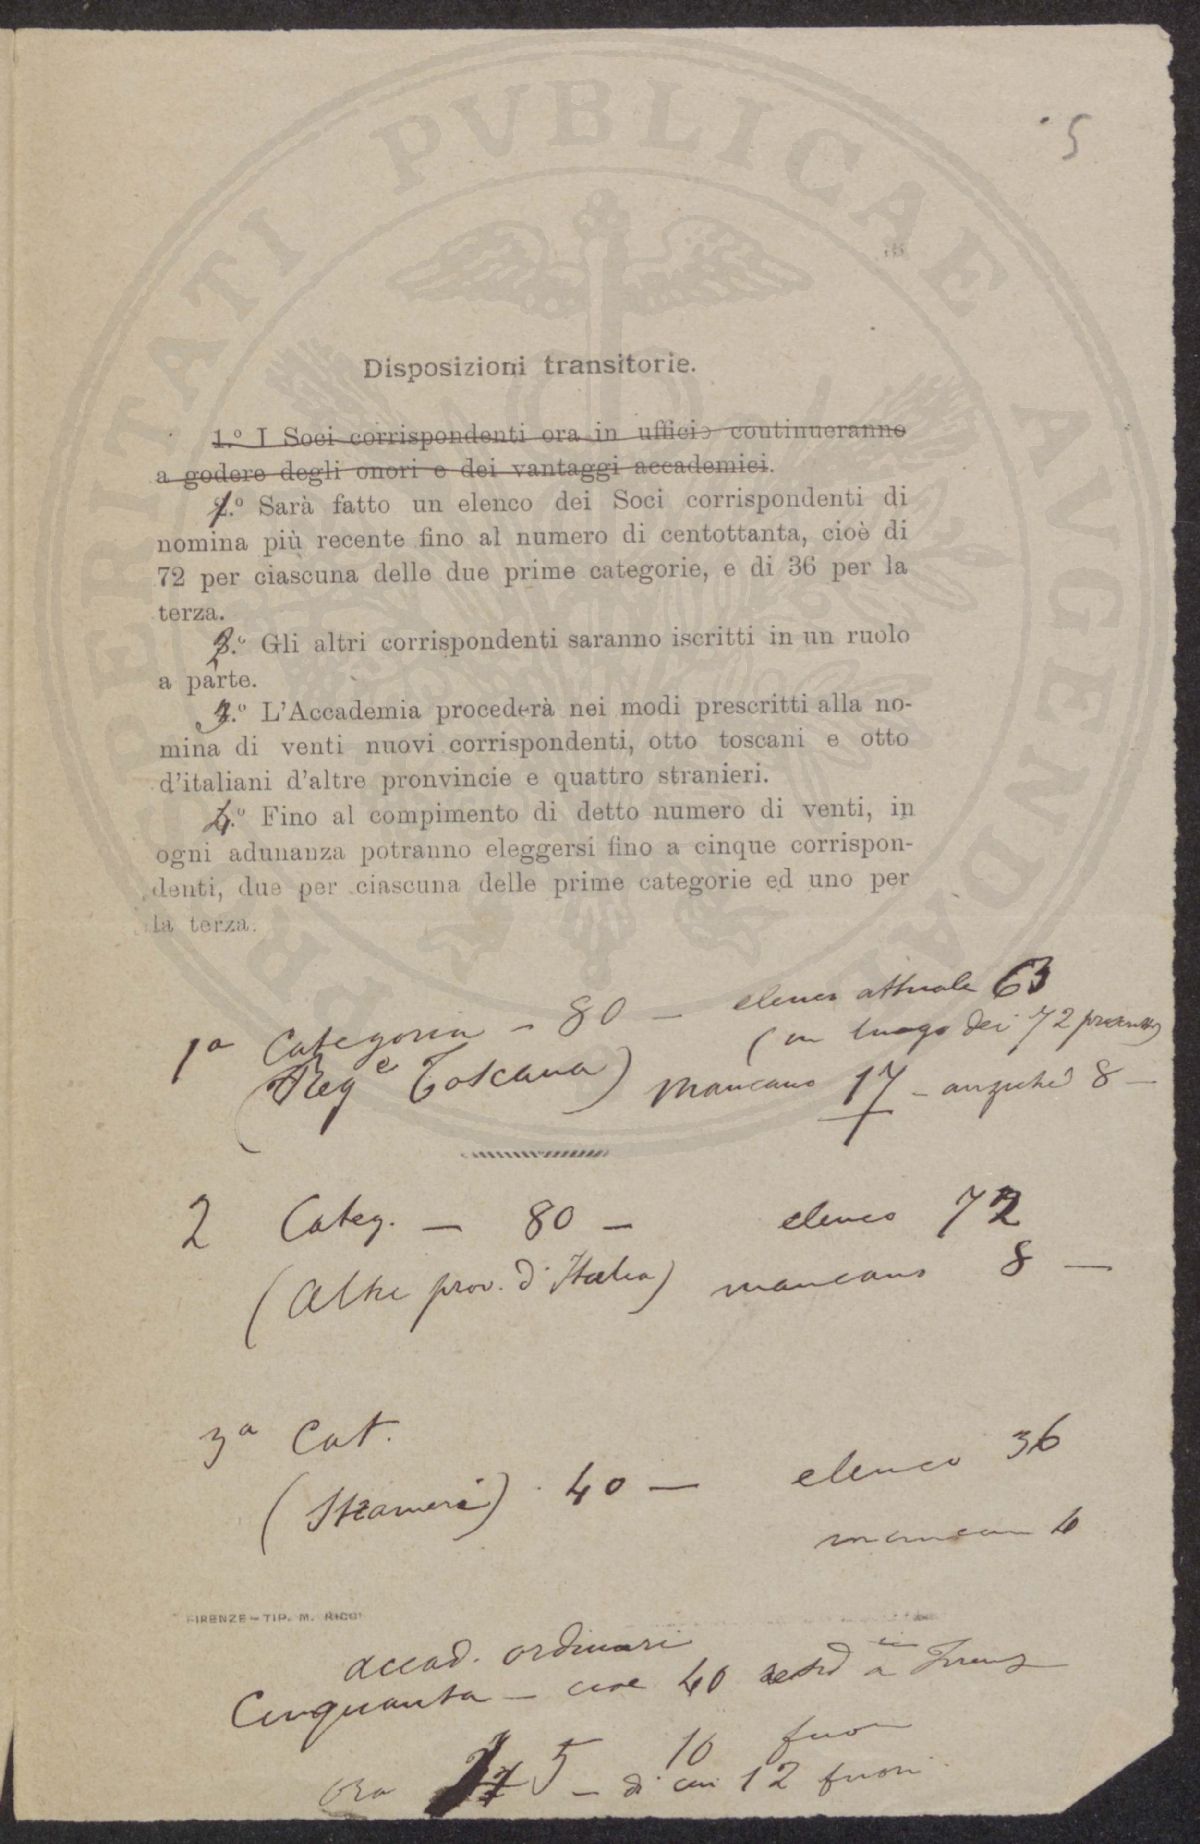 5
Disposizioni transitorie.
1.º I Soci corrispondenti ora in ufficio continueranno
a godere degli onori e dei vantaggi accademici.
1.º Sarà fatto un elenco dei Soci corrispondenti di
nomina più recente fino al numero di centottanta, cioè di
72 per ciascuna delle due prime categorie, e di 36 per la
terza.
2.º Gli altri corrispondenti saranno iscritti in un ruolo
a parte.
3.º L'Accademia procederà nei modi prescritti alla no-
mina di venti nuovi corrispondenti, otto toscani e otto
d'italiani d'altre pronvincie e quattro stranieri.
4.º Fino al compimento di detto numero di venti, in
ogni adunanza potranno eleggersi fino a cinque corrispon-
denti, due per ciascuna delle prime categorie ed uno per
la terza.
1ª Categoria - 80 - elenco attuale 63
(in luogo dei 72
(Regᵉ Toscana) mancano 17 - anzichè 8 -
2 Categ. - 80 - elenco 72
(Altre prov. d'Italia) mancano 8 -
3ª Cat.
(Stranieri) 40 - elenco 36
mancan 4
FIRENZE - TIP. M. RICCI
accad. ordinari
Cinquanta - cioe 40 a Firenz
10 fuori
ora 5 - di cui 12 fuori
PERENNITATI PVBLICAE AVGENDAE